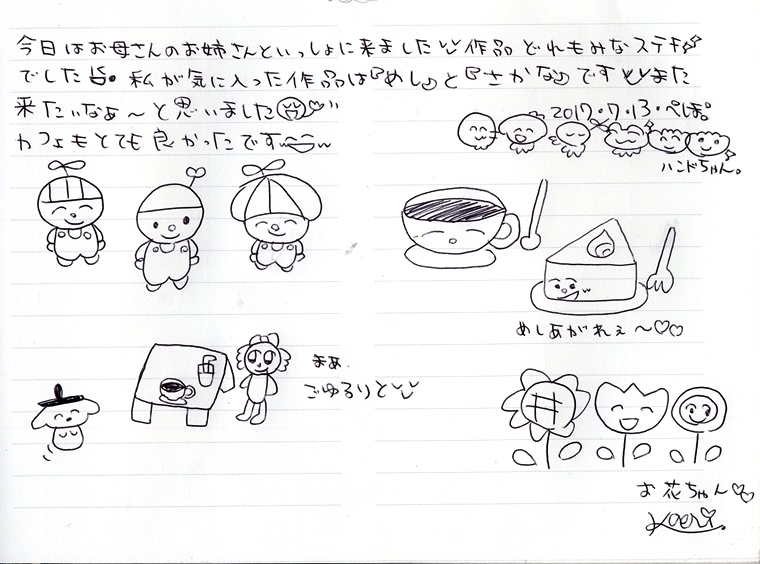 今日はお母さんのお姉さんといっしょに来ました 作品 どれもみなステキ
でした。私が気に入った作品は『めし』と『さかな』です また
来たいなぁ～と思いました♡
カフェもとても良かったです
2017.7.13.ぺぽ。
ハンドちゃん。
めしあがれぇ～♡♡
まあ、
ごゆるりと
お花ちゃん♡
Kaeri.